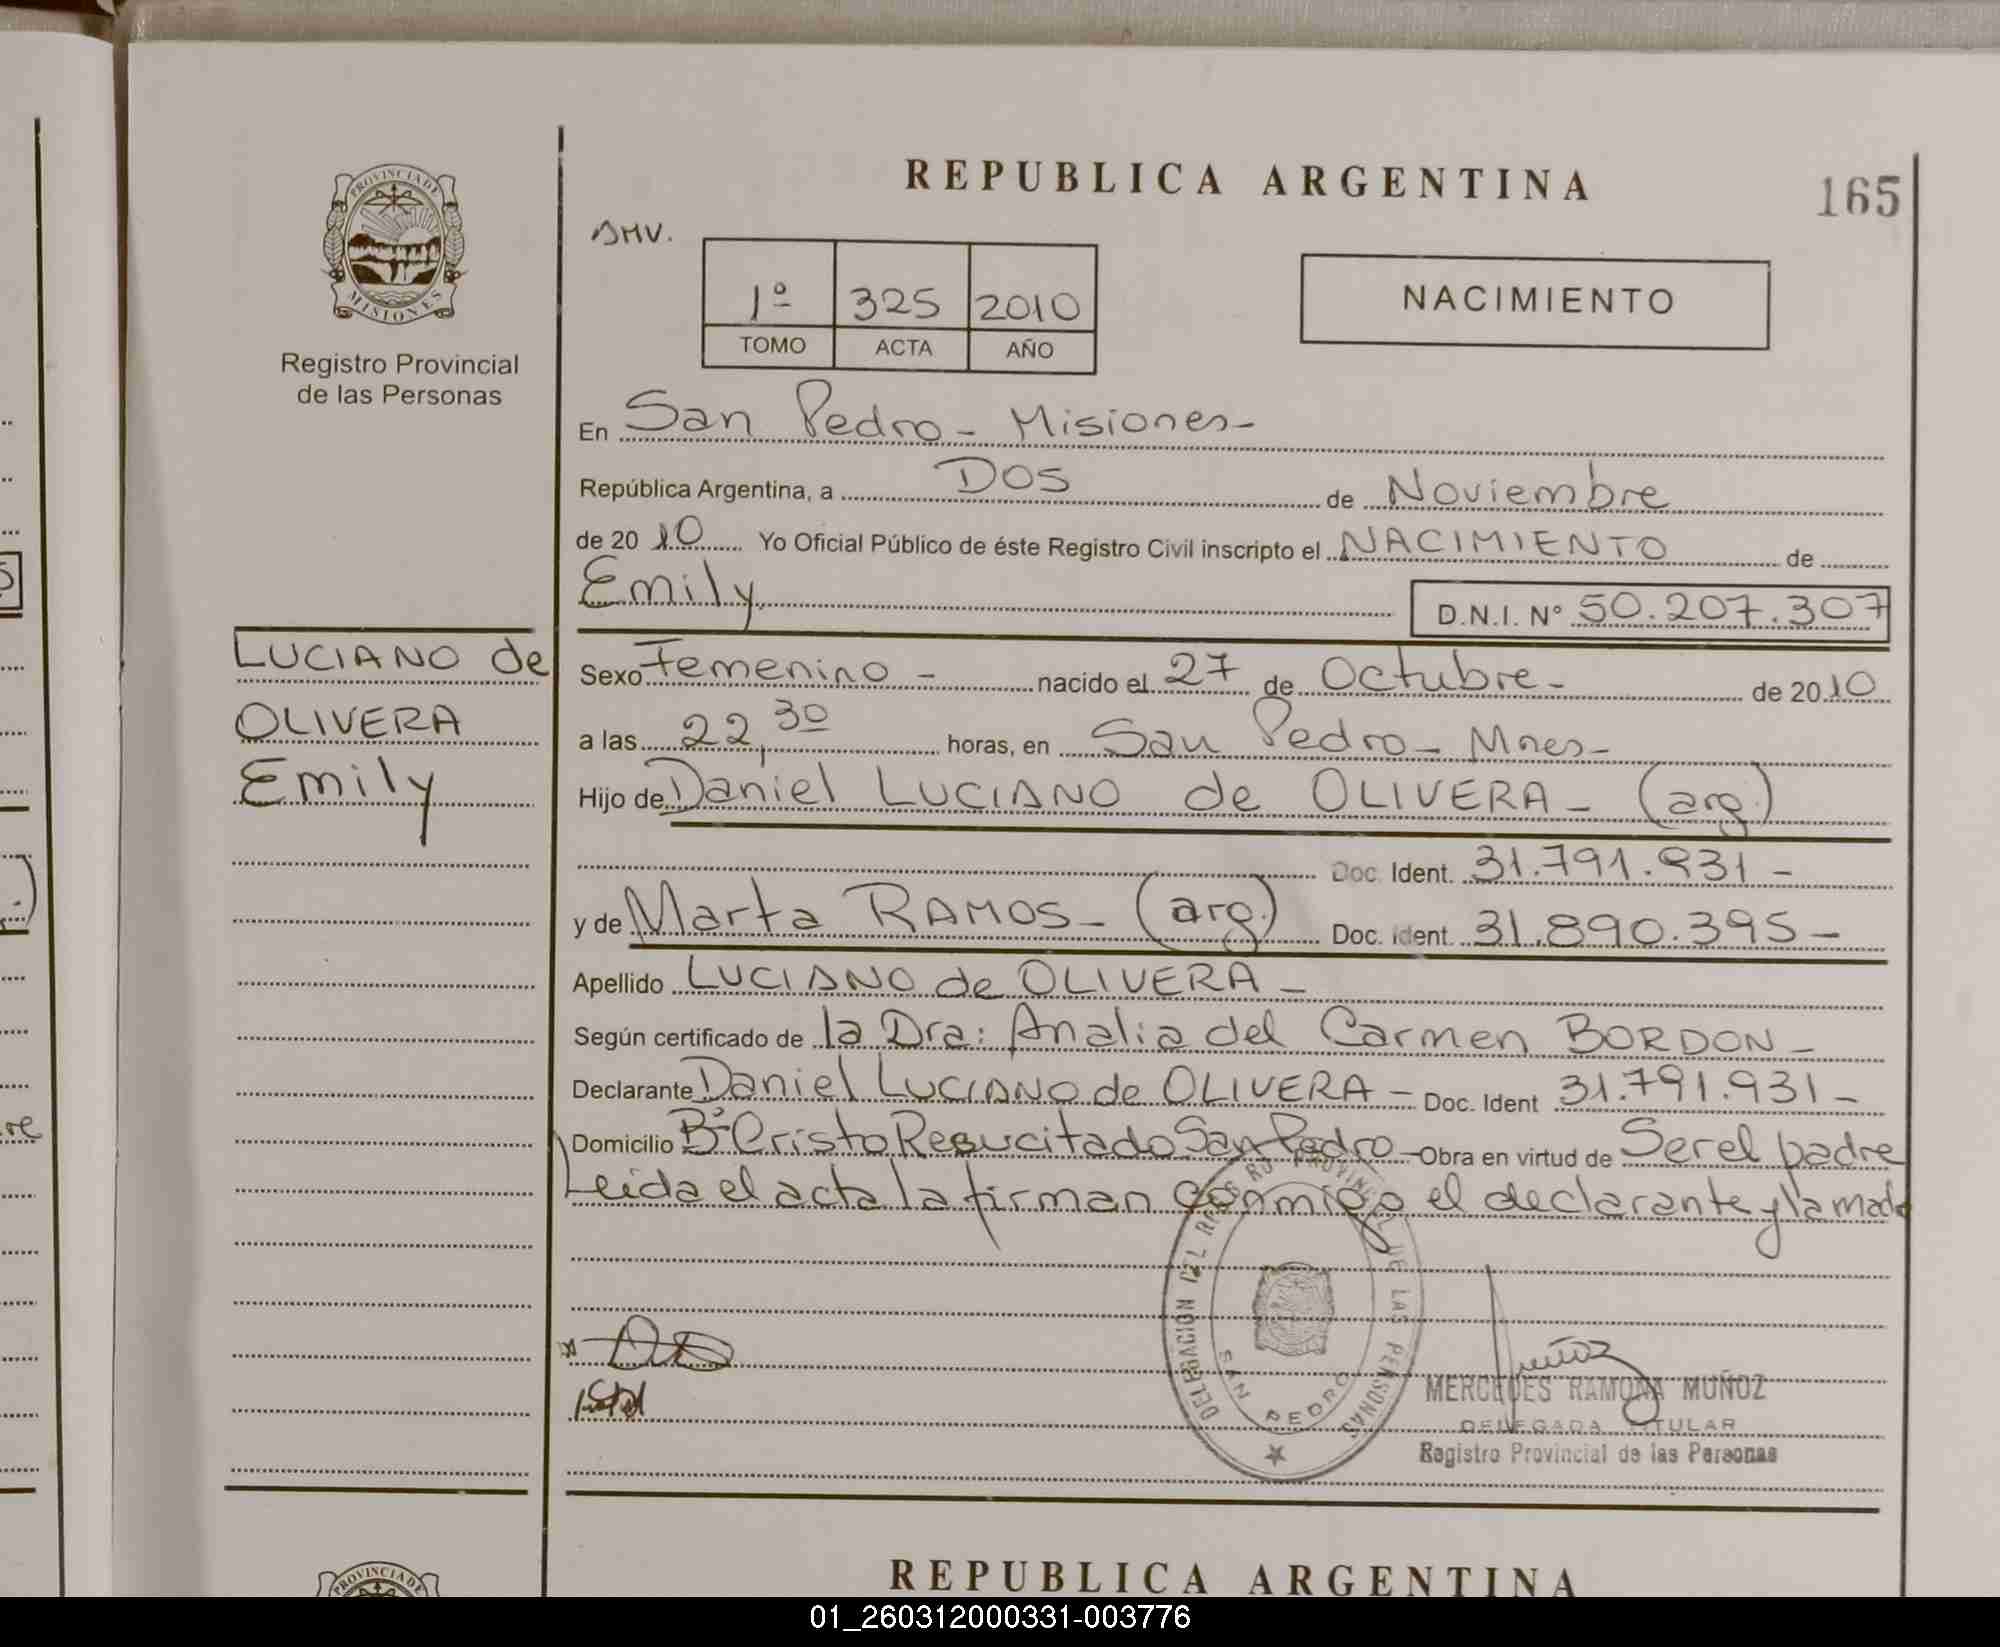 REPUBLICA ARGENTINA
165
PROVINCIA DE
MISIONES
Registro Provincial
de las Personas
1º 325 2010
TOMO ACTA AÑO
NACIMIENTO
En San Pedro - Misiones-
República Argentina, a DOS de Noviembre
de 2010 Yo Oficial Público de éste Registro Civil inscripto el NACIMIENTO de
Emily D.N.I. Nº 50.207.307
LUCIANO de
OLIVERA
Emily
Sexo Femenino - nacido el 27 de Octubre - de 2010
a las 22,30 horas, en San Pedro - Mnes-
Hijo de Daniel LUCIANO de OLIVERA - (arg.)
Doc. Ident. 31.791.931 -
y de Marta RAMOS - (arg.) Doc. Ident. 31.890.395 -
Apellido LUCIANO de OLIVERA -
Según certificado de la Dra: Analia del Carmen BORDON -
Declarante Daniel LUCIANO de OLIVERA - Doc. Ident 31.791.931 -
Domicilio Bº Cristo Resucitado San Pedro - Obra en virtud de Ser el padre
Leida el acta la firman conmigo el declarante y la madre
DELEGACION DEL REGISTRO PROVINCIAL DE LAS PERSONAS
SAN PEDRO
MERCEDES RAMONA MUÑOZ
DELEGADA TITULAR
Registro Provincial de las Personas
PROVINCIA DE
REPUBLICA ARGENTINA
01_260312000331-003776